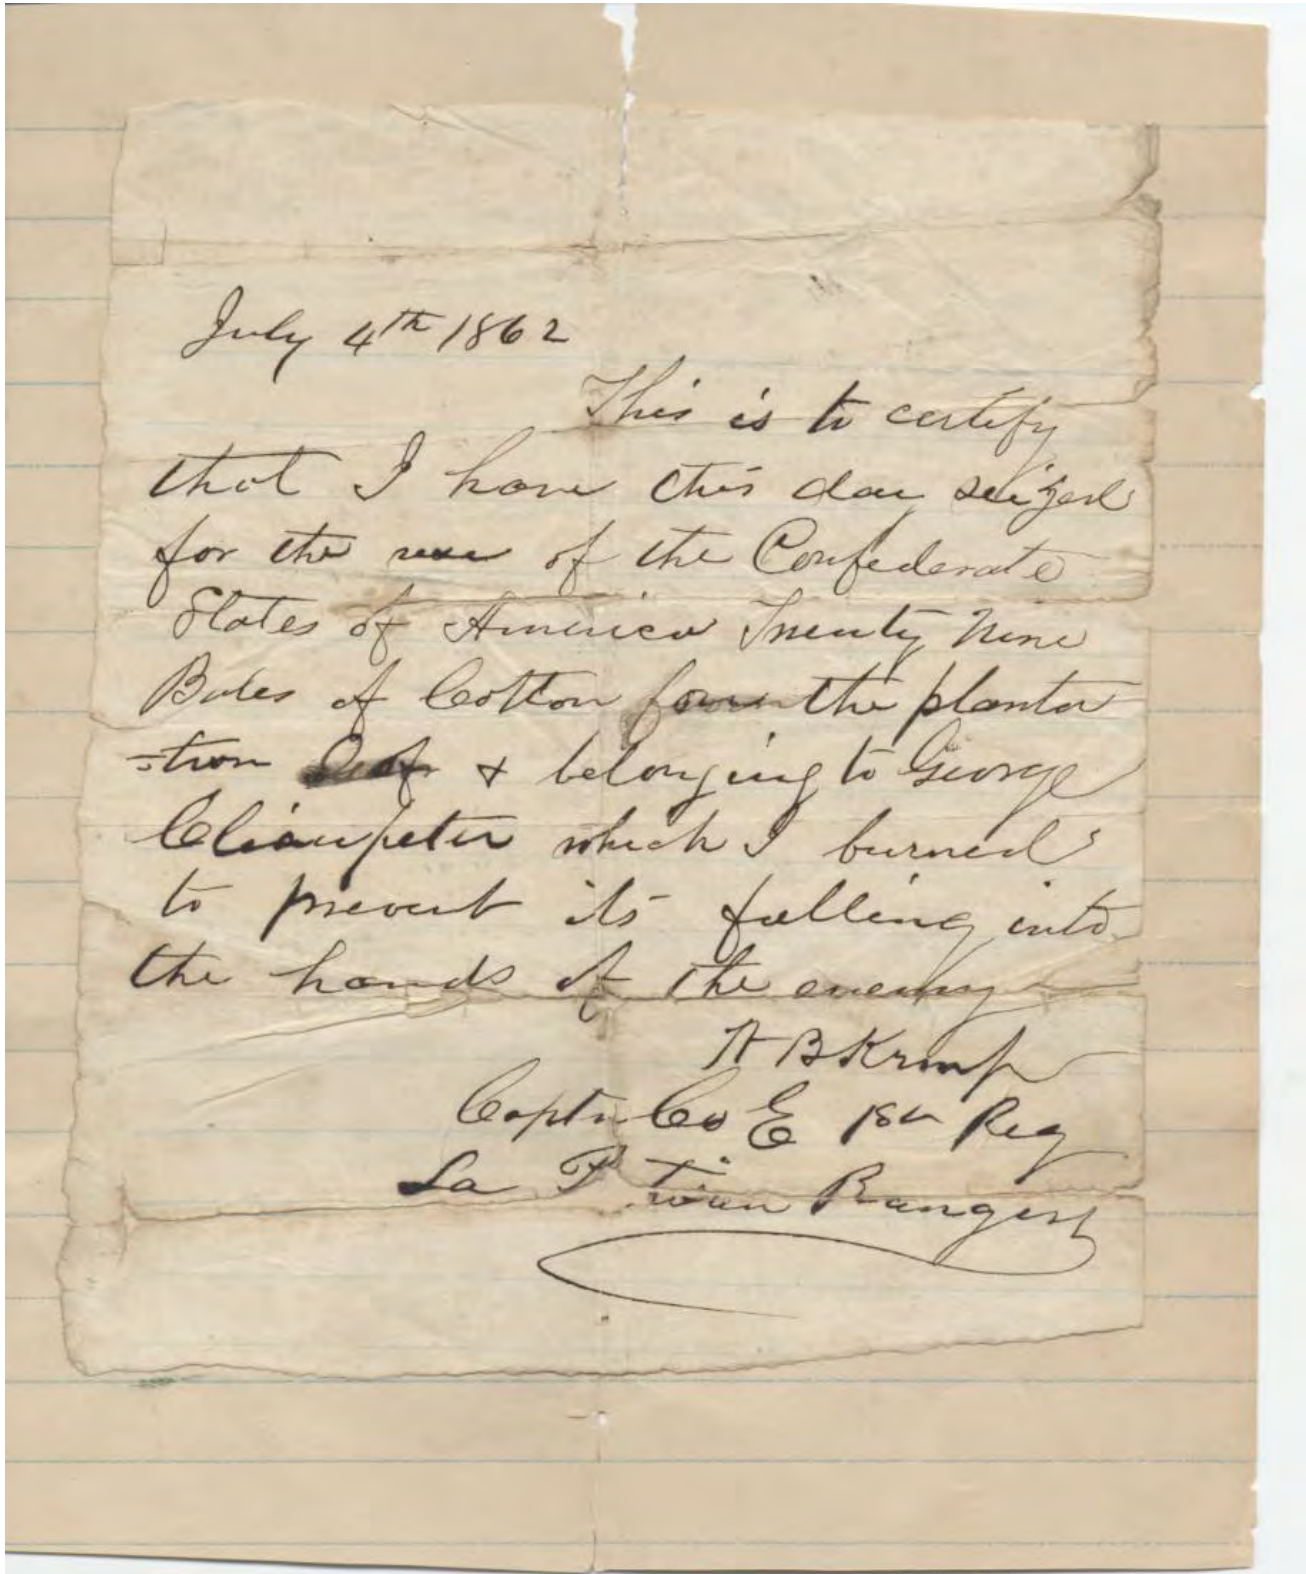 July 4th 1862
This is to certify
that I have this day seized
for the use of the Confederate
States of America Twenty Nine
Bales of Cotton from the planta
-tion of & belonging to George
which I burned
to prevent its falling into
the hands of the enemy
Captn Co E 1st Reg
La P Rangers